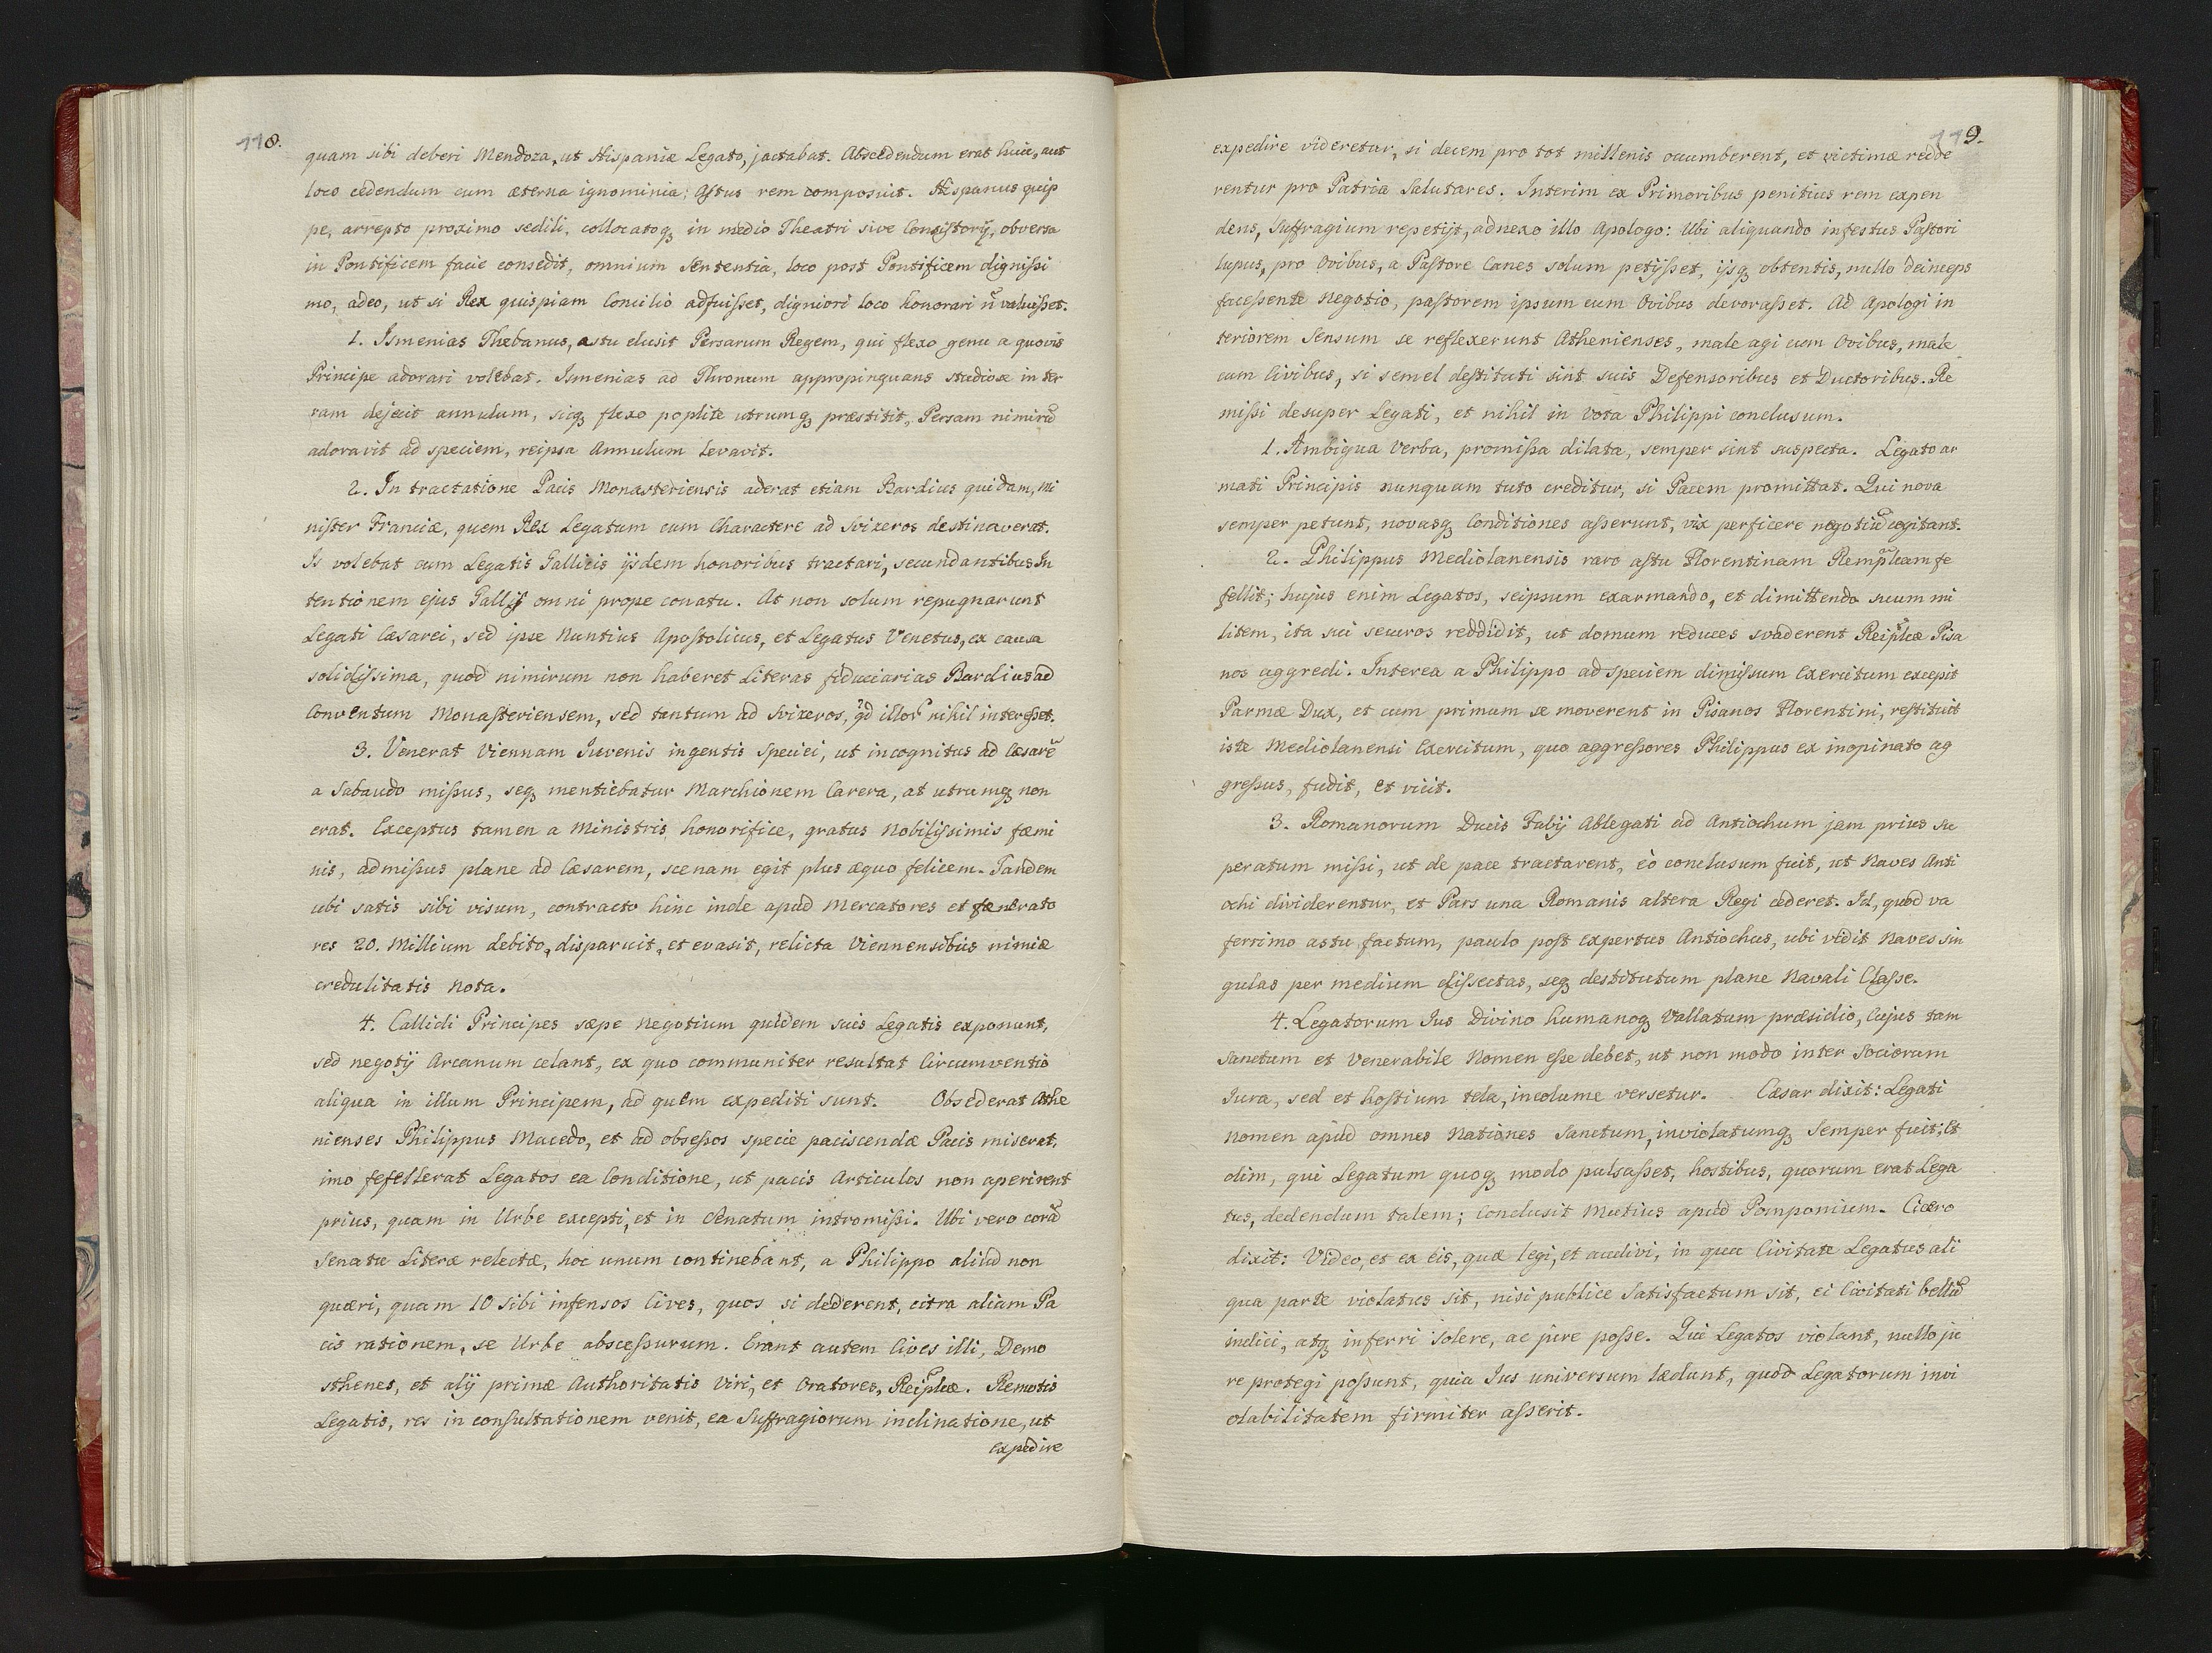 118.
quam sibi deberi Mendoza, ut Hispaniæ Legato, jactabat. Abscedendum erat huic, aut
loco cedendum cum æterna ignominia; Astus rem composuit. Hispanus quip
pe, arrepto proximo sedili, collocatoq in medio Theatri sive Consistorij, obversa
in Pontificem facie consedit, omnium Sententia, loco post Pontificem dignissi
mo, adeo, ut si Rex quispiam Concilio adfuisset, digniori loco honorari ñ valuisset.
1. Ismenias Thebanus, astu elusit Persarum Regem, qui flexo genu a quovis
Principe adorari volebat. Ismenias ad Thronum appropinquans studiose in ter
ram dejecit annulum, sicq flexo poplite utrumq præstitit, Persam nimirũ
adoravit ad speciem, reipsa Annulum levavit.
2. In tractatione Pacis Monasteriensis aderat etiam Bardius quidam, mi
nister Franciæ, quem Rex Legatum cum Charactere ad Svizeros destinaverat.
Is volebat cum Legatis Gallicis ijsdem honoribus tractari, secundantibus In
tentionem ejus Gallis omni prope conatu. At non solum repugnarunt
Legati Cæsarei, sed ipse Nuntius Apostolicus, et Legatus Venetus, ex causa
solidissima, quod nimirum non haberet Literas fiduciarias Bardius ad
Conventum Monasteriensem, sed tantum ad Svizeros, qd illor nihil interesset.
3. Venerat Viennam Iuvenis ingentis speciei, ut incognitus ad Cæsarẽ
a Sabaudo missus, seq mentiebatur Marchionem Carera, at utrumq non
erat. Exceptus tamen a Ministris honorifice, gratus Nobilissimis fæmi
nis, admissus plane ad Cæsarem, scenam egit plus æquo felicem. Tandem
ubi satis sibi visum, contracto hinc inde apud Mercatores et fænerato
res 20. Millium debito, disparuit, et evasit, relicta Viennensibus nimiæ
credulitatis nota.
4. Callidi Principes sæpe negotium quidem suis Legatis exponunt,
sed negotij Arcanum celant, ex quo communiter resultat Circumventio
aliqua in illum Principem, ad quem expediti sunt. Obsederat Athe
nienses Philippus Macedo, et ad obsessos specie paciscendæ Pacis miserat,
imo fefellerat Legatos ea Conditione, ut pacis Articulos non aperirent
prius, quam in Urbe excepti, et in Senatum intromissi. Ubi vero corã
Senatu Literæ relectæ, hoc unum continebant, a Philippo aliud non
quæri, quam 10 sibi infensos Cives, quos si dederent, citra aliam Pa
cis rationem, se Urbe abscessurum. Erant autem Cives illi, Demo
sthenes, et alij primæ Authoritatis Viri, et Oratores, Reiplcæ. Remotis
Legatis, res in consultationem venit, ea Suffragiorum inclinatione, ut
expedire
119.
expedire videretur, si decem pro tot millenis ocumberent, et victimæ redde
rentur pro Patria Salutares. Interim ex Primoribus penitius rem expen
dens, Suffragium repetijt, adnexo illo Apologo: Ubi aliquando infestus Pastori
lupus, pro Ovibus, a Pastore Canes solum petijsset, ijsq obtentis, nullo deinceps
facessente Negotio, pastorem ipsum cum Ovibus devorasset. Ad Apologi in
teriorem Sensum se reflexerunt Athenienses, male agi cum Ovibus, male
cum Civibus, si semel destituti sint suis Defensoribus et Ductoribus. Re
missi desuper Legati, et nihil in Vota Philippi conclusum.
1. Ambigua Verba, promissa dilata, semper sint suspecta. Legato ar
mati Principis nunquam tuto creditur, si Pacem promittat. Qui nova
semper petunt, novasq Conditiones asserunt, vix perficere negotiũ cogitant.
2. Philippus Mediolanensis raro astu Florentinam Remplcam fe
fellit; hujus enim Legatos, seipsum exarmando, et dimittendo suum mi
litem, ita sui securos reddidit, ut domum reduces svaderent Reiplcæ Pisa
nos aggredi. Interea a Philippo ad speciem dimissum Exercitum excepit
Parmæ Dux, et cum primum se moverent in Pisanos Florentini, restituit
iste Mediolanensi Exercitum, quo aggressores Philippus ex inopinato ag
gressus, fudit, et vicit.
3. Romanorum Ducis Fabij Ablegati ad Antiochum jam prius su
peratum missi, ut de pace tractarent, eò conclusum fuit, ut Naves Anti
ochi dividerentur, et Pars una Romanis altera Regi cederet. Id, quod va
ferrimo astu factum, paulo post expertus Antiochus, ubi vidit Naves sin
gulas per medium dissectas, seq destitutum plane Navali Classe.
4. Legatorum Ius Divino humanoq Vallatum præsidio, Cujus tam
Sanctum et Venerabile Nomen esse debet, ut non modo inter Sociorum
Iura, sed et hostium tela, incolume versetur. Cæsar dixit: Legati
Nomen apud omnes Nationes Sanctum, inviolatumq Semper fuit; Et
olim, qui Legatum quoq modo pulsasset, hostibus, quorum erat Lega
tus, dedendum talem; Conclusit Mutius apud Pomponium. Cicero
dixit: Video, et ex eis, quæ legi, et audivi, in qua Civitate Legatus ali
qua parte violatus sit, nisi publice Satisfactum sit, ei Civitati bellũ
indici, atq inferri Solere, ac jure posse. Qui Legatos violant, nullo ju
re protegi possunt, quia Ius universum lædunt, quod Legatorum invi
olabilitatem firmiter asserit.